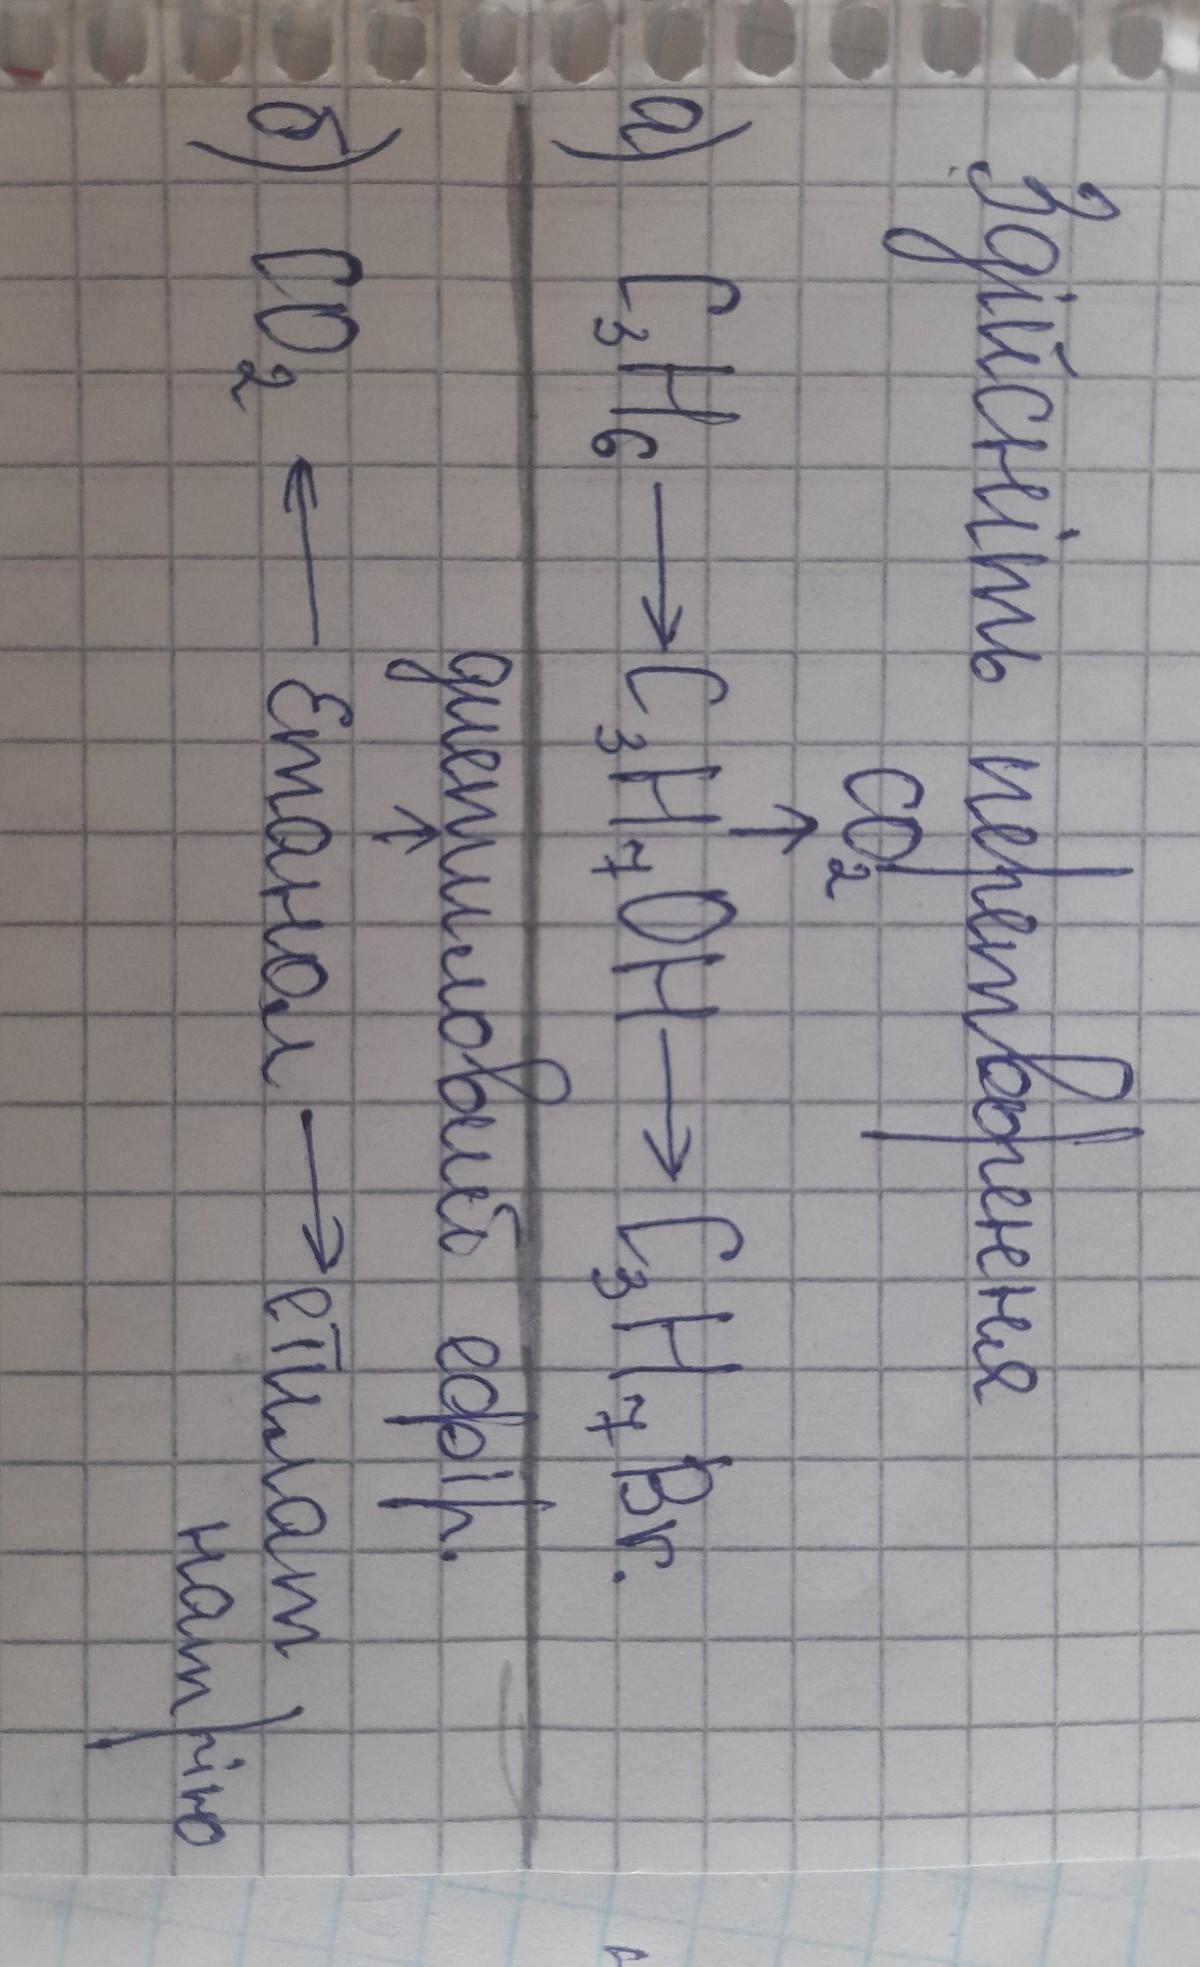 Здійсніть перетворення
CO₂
↑
а) C₃H₆ → C₃H₇OH → C₃H₇Br.
диетиловий ефір.
↑
б) CO₂ ← Етанол → етилат
натрію